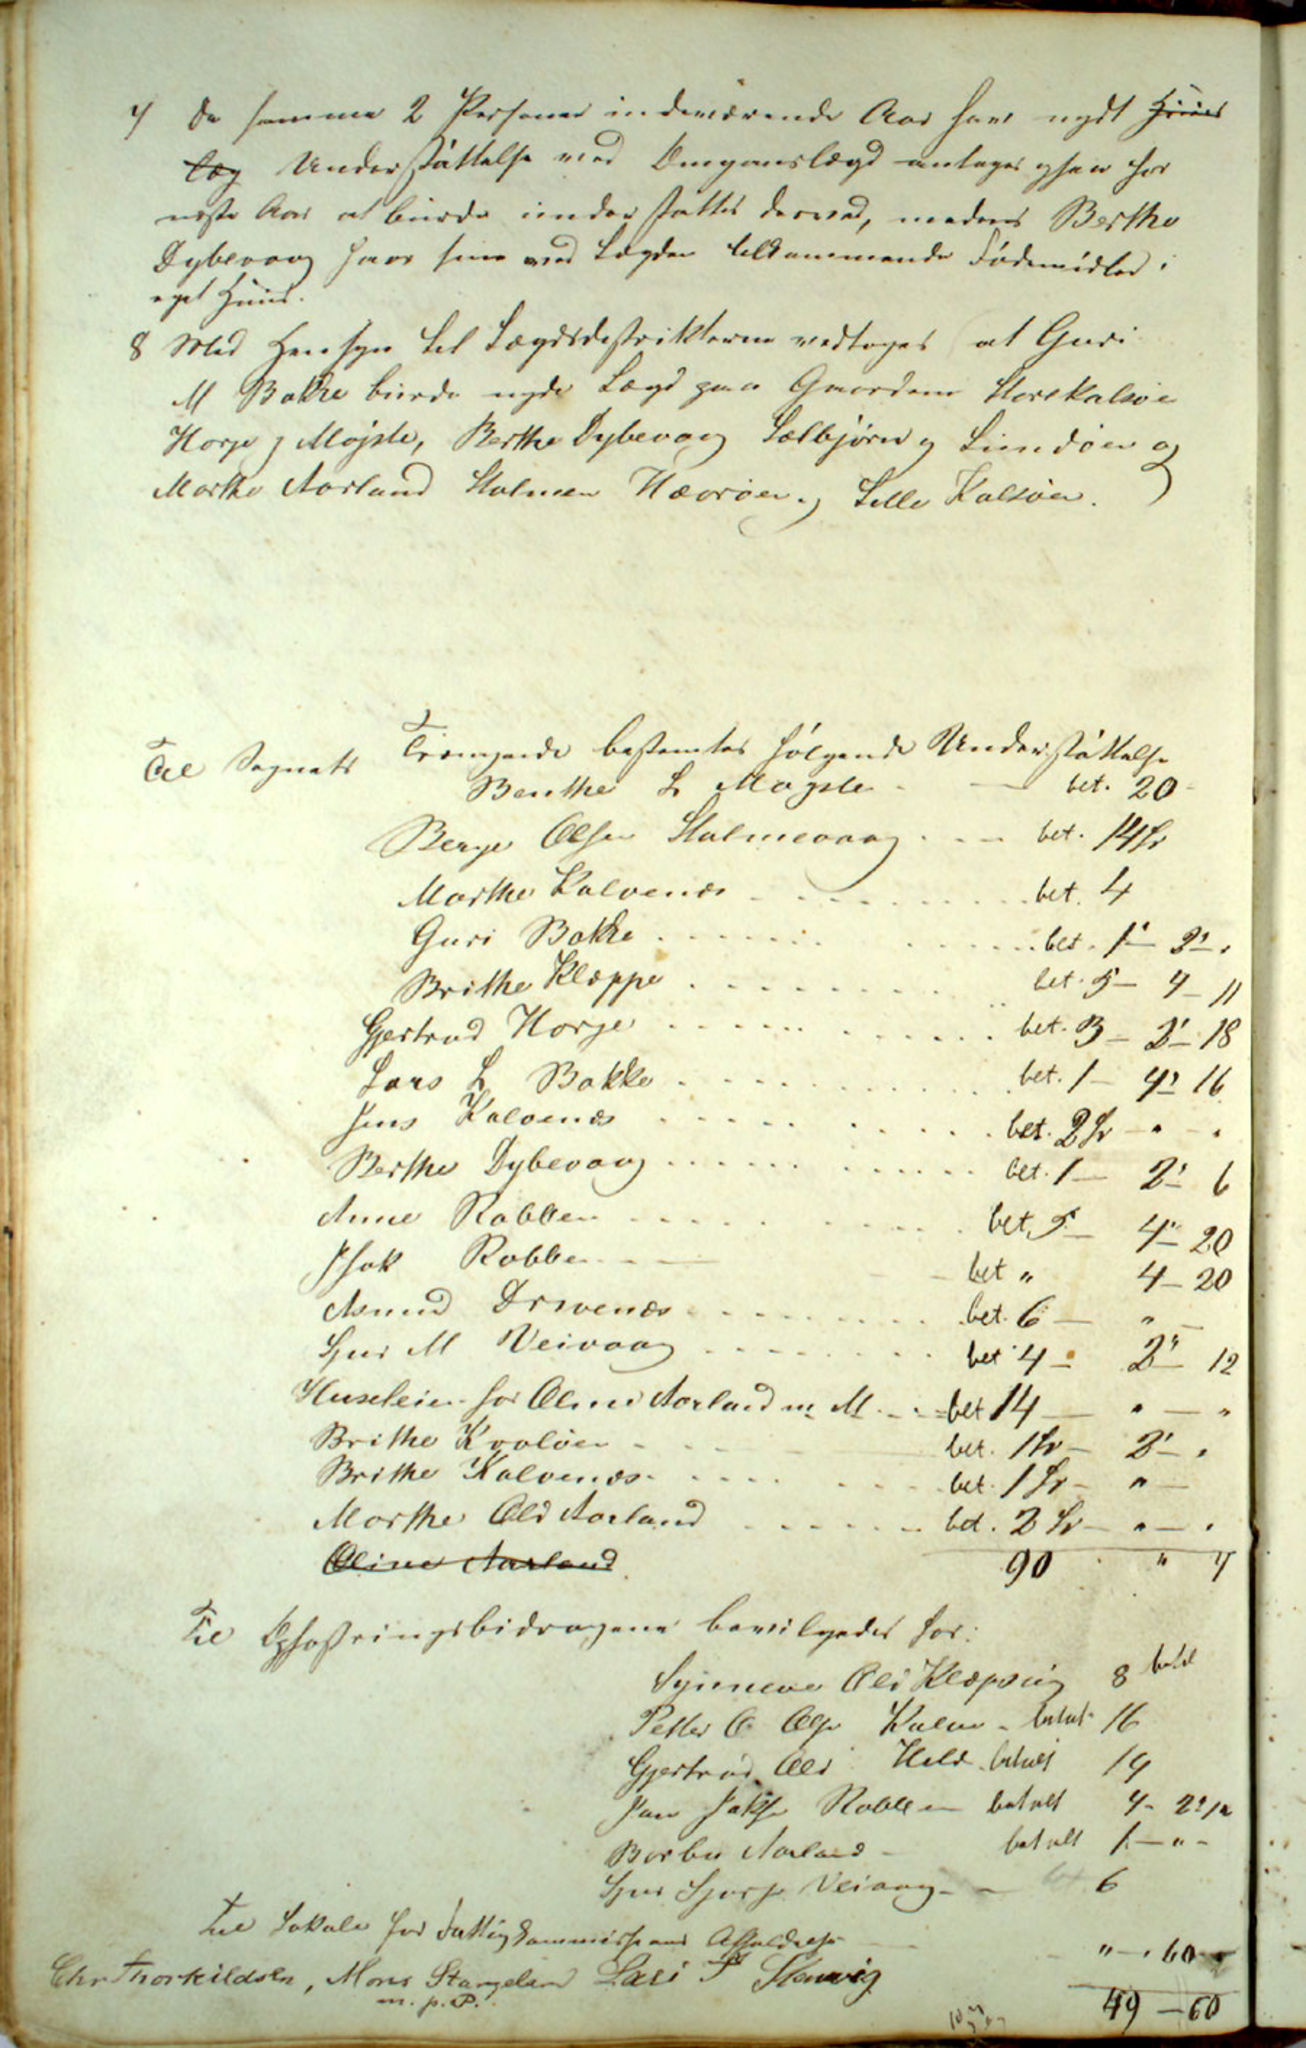 7 De samme 2 Personer indeværende Aar har nydt Huus
læg Understøttelse ved Omgangslægd antages ogsaa for
næste Aar at burde understøttes derved, medens Berthe
Dybevaag faar sine ved Lægden tilkommende Fødemidler i
eget Huus.
8 Med Hensyn til Lægdsdistrikterne vedtoges at Guri
M Bakke burde nyde Lægd paa Gaardene Storekalsøe
Horge og Møgste, Berthe Dybevaag Sælbjørn og Limdøen og
Marthe Aarland Stolmen Hævrøen og Lille Kalsøen.
Til Sognets Trængende bestemtes følgende Understøttelse
Benthe L Møgste - bet. 20
Berge Olsen Stolmevaag . . - bet. 14 Sp
Marthe Kalvenæs . . . . bet. 4
Guri Bakke . . . . bet. 1 - 2 - "
Brithe Kleppe . . . . bet. 5 - 4 - 11
Gjertrud Horge . . . . bet. 3 - 2 - 18
Lars L Bakke . . . . bet. 1 - 4 - 16
Jens Kalvenæs . . . . bet. 2 Sp - " - "
Berthe Dybevaag . . . . bet. 1 - 2 - 6
Anne Robben . . . . bet. 5 - 4 - 20
Isak Robben - bet " 4 - 20
Asmund Drivenæs . . . . bet. 6 - " -
Sjur M Veivaag . . . . bet 4 - 2 - 12
Huusleie for Oline Aarland m. M. - bet 14 - " - "
Brithe Kvaløen - bet. 1 Sp - 2 - "
Brithe Kalvenæs . . . . bet. 1 Sp - " -
Marthe Olsd Aarland . . . . bet. 2 Sp - " - "
Oline Aarland 90 " 7
Til Opfostringsbidragene bevilgedes for:
Synneve Olsd 8 betal
Petter O Olsen Kalve - betalt 16
Gjertrud Olsd betalt 14
Jan Robben betalt 4 - 2 12
Barbro Aarland - betalt 1 - " -
Sjur Sjurs Veivaag - 6
Til Lokale for Fattigkommissionens Afholdelse " - 60
Chr Thorkildsen, Mons Stangeland Lars P Stenevig
m. p. P.
49 - 60